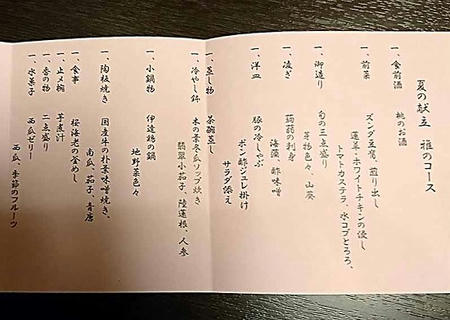 夏の献立　雅のコース
一、食前酒　桃のお酒
一、前菜　ズンダ豆腐、煎り出し
蓮芋・ホワイトチキンの浸し
トマトカステラ、水コブとろろ、
一、御造り　旬の三点盛り
芽物色々、山葵
一、凌ぎ　蒟蒻の刺身
海藻、酢味噌
一、洋皿　豚の冷しゃぶ
ポン酢ジュレ掛け
サラダ添え
一、蒸し物　茶碗蒸し
一、冷やし鉢　木の葉冬瓜ソップ炊き
翡翠小茄子、陸蓮根、人参
一、小鍋物　伊達鶏の鍋
地野菜色々
一、陶板焼き　国産牛の朴葉味噌焼き、
南瓜、茄子、青唐
一、食事　桜海老の釜めし
一、止メ椀　芋煮汁
一、香の物　二点盛り
一、水菓子　西瓜ゼリー
西瓜、季節のフルーツ